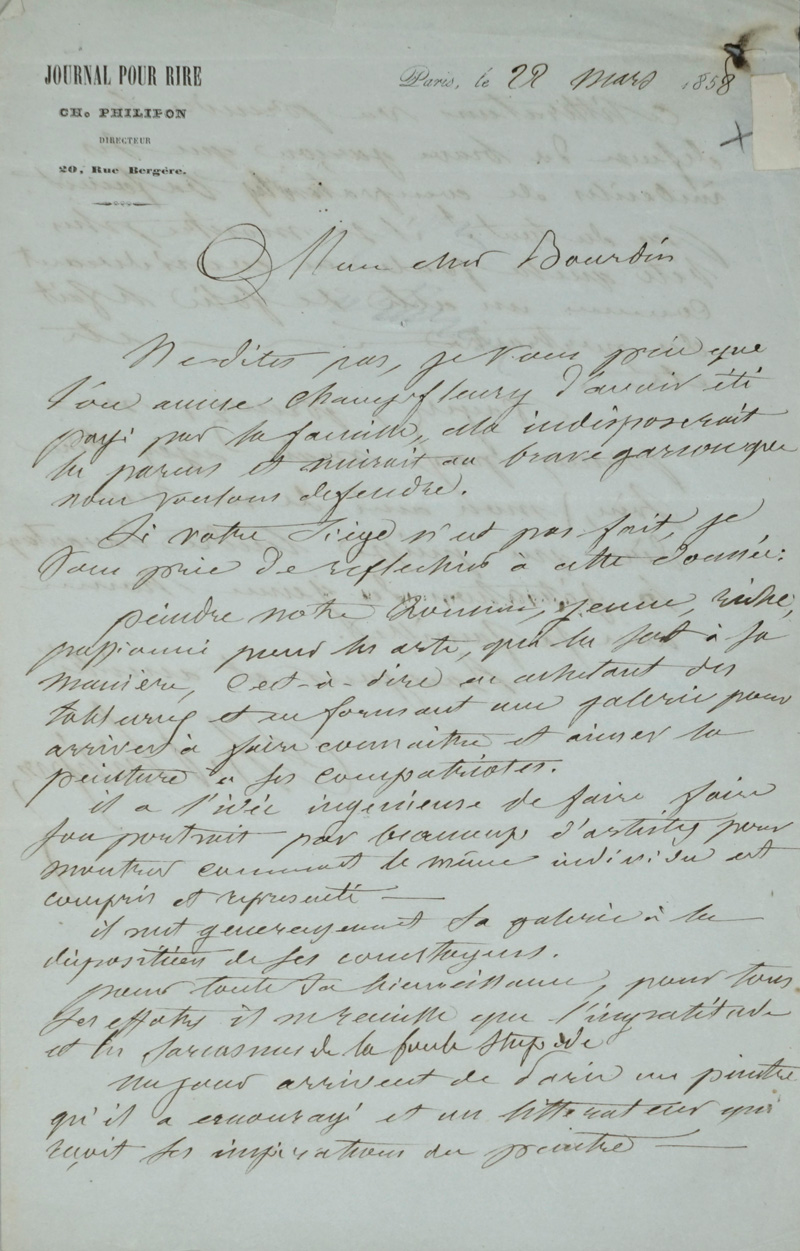 JOURNAL POUR RIRE
CH. PHILIPON
DIRECTEUR
20, Rue Bergère.
Paris, le 22 mars 1858
Mon cher Bourdin
Ne dites pas, je vous prie que
l'on accuse Champfleury d'avoir été
payé par la famille, cela indisposerait
les parens et nuirait au brave garson que
nous voulons defendre.
Si votre siège n'est pas fait, je
vous prie de reflechir à cette donnée:
peindre notre homme, jeune, riche,
passionné pour les arts, qui les sert à sa
manière, c'est-à-dire en achetant des
tableaux et en formant une galerie pour
arriver à faire connaitre et aimer la
peinture à ses compatriotes.
il a l'idée ingenieuse de faire faire
son portrait par beaucoup d'artistes pour
montrer comment le même individu est
compris et représenté —
il met genereusement sa galerie à la
disposition de ses concitoyens.
pour toute sa bienveillance, pour tous
ses efforts il ne recueille que l'ingratitude
et les sarcasmes de la foule stupide
un jour arrivent de Paris un peintre
qu'il a encouragé et un litterateur qui
reçoit ses inspirations du peintre —